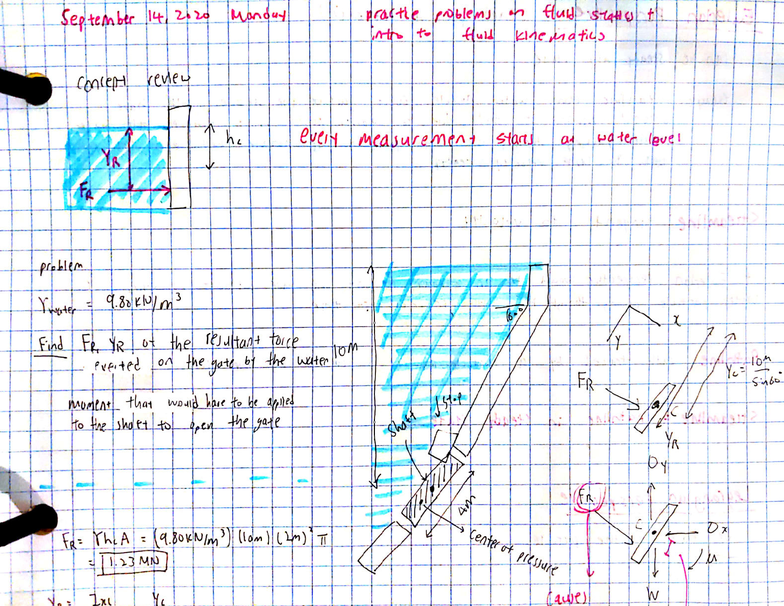 September 14, 2020 Monday
practie problems on fluid statics +
intro to fluid kinematics
concept review
YR
FR
hc
every measurement starts at water level
problem
γwater = 9.80 kN/m³
Find FR, YR of the resultant force
exerted on the gate by the water
moment that would have to be applied
to the shaft to open the gate
10M
60°
shaft
stop
4m
Center of pressure
x
Y
FR
C
YR
Yc = 10m / sin60°
Oy
FR
C
Ox
M
W
FR = γhcA = (9.80 kN/m³) (10m) (2m)² π
= 1.23 MN
YR = Ixc Yc